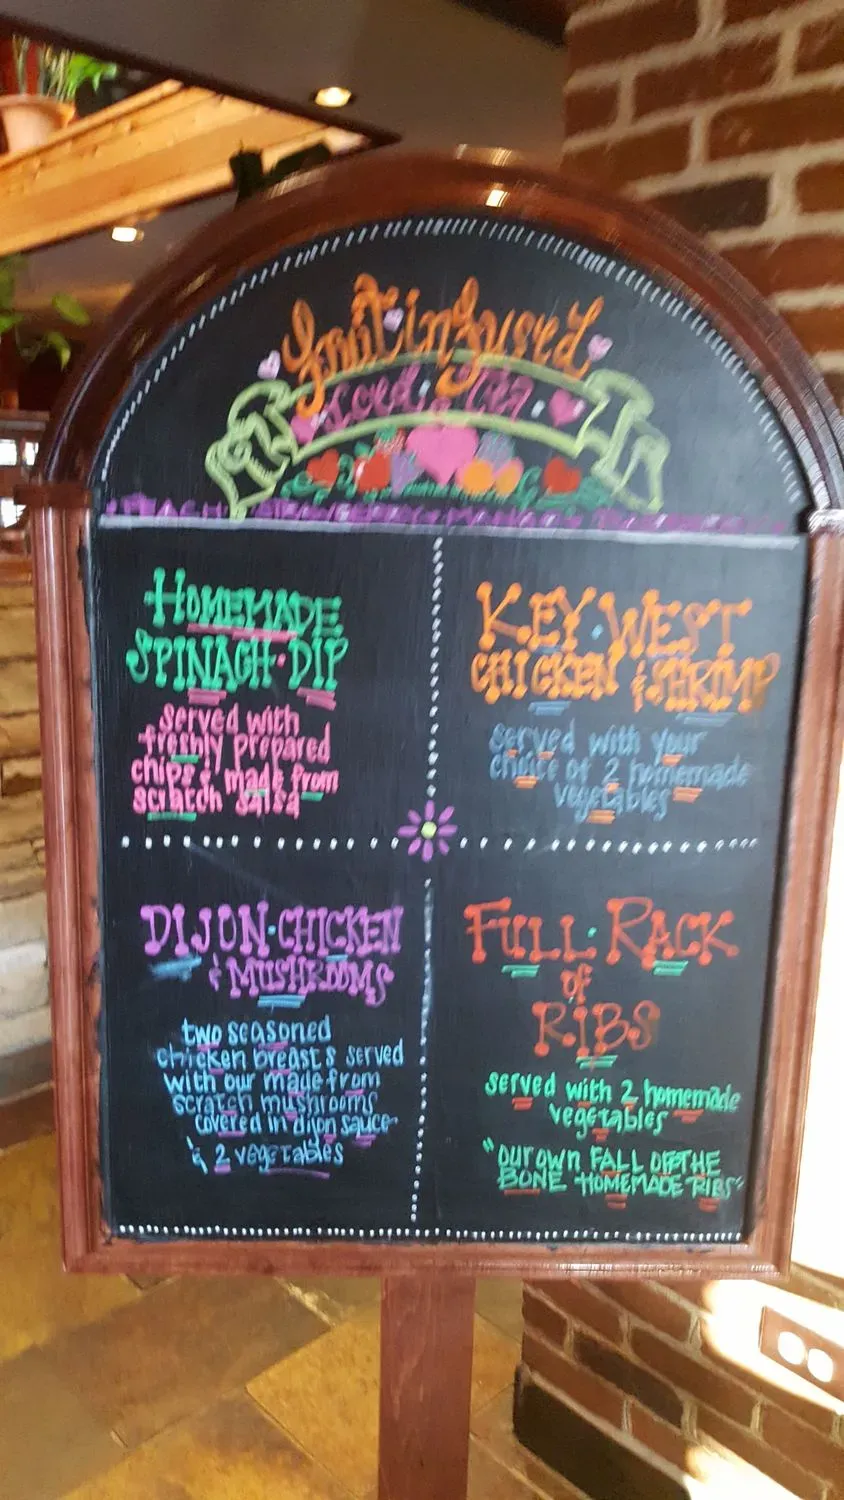 Fruit infused
Iced Tea
PEACH STRAWBERRY MANGO
HOMEMADE
SPINACH DIP
served with
freshly prepared
chips & made from
scratch salsa
KEY WEST
CHICKEN & SHRIMP
served with your
choice of 2 homemade
vegetables
DIJON CHICKEN
& MUSHROOMS
two seasoned
chicken breasts served
with our made from
scratch mushrooms
covered in dijon sauce
& 2 vegetables
FULL RACK
of
RIBS
served with 2 homemade
vegetables
"OUR OWN FALL OFF THE
BONE HOMEMADE RIBS"